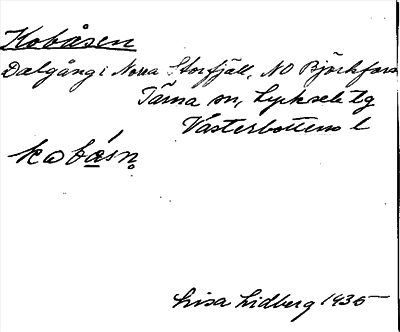 Kobåsen
Dalgång i Norra Storfjäll, NO Björkfors
Tärna sn, Lycksele tg
Västerbottens l
kobǻsn̥
Lisa Lidberg 1935